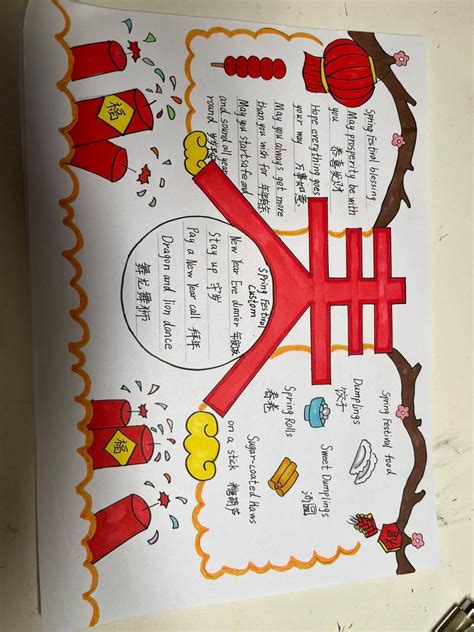 Spring Festival blessing
May prosperity be with
you 恭喜发财
Hope everything goes
your way 万事如意
May you always get more
than you wish for 年年有余
May you start safe and
and sound all year
round 岁岁平安
春
Spring Festival
Custom
New Year Eve dinner 年夜饭
Stay up 守岁
Pay a New Year call 拜年
Dragon and lion dance
舞龙舞狮
Spring Festival food
Dumplings
饺子
Sweet Dumplings
汤圆
Spring Rolls
春卷
Sugar-coated Haws
on a stick 糖葫芦
福
福